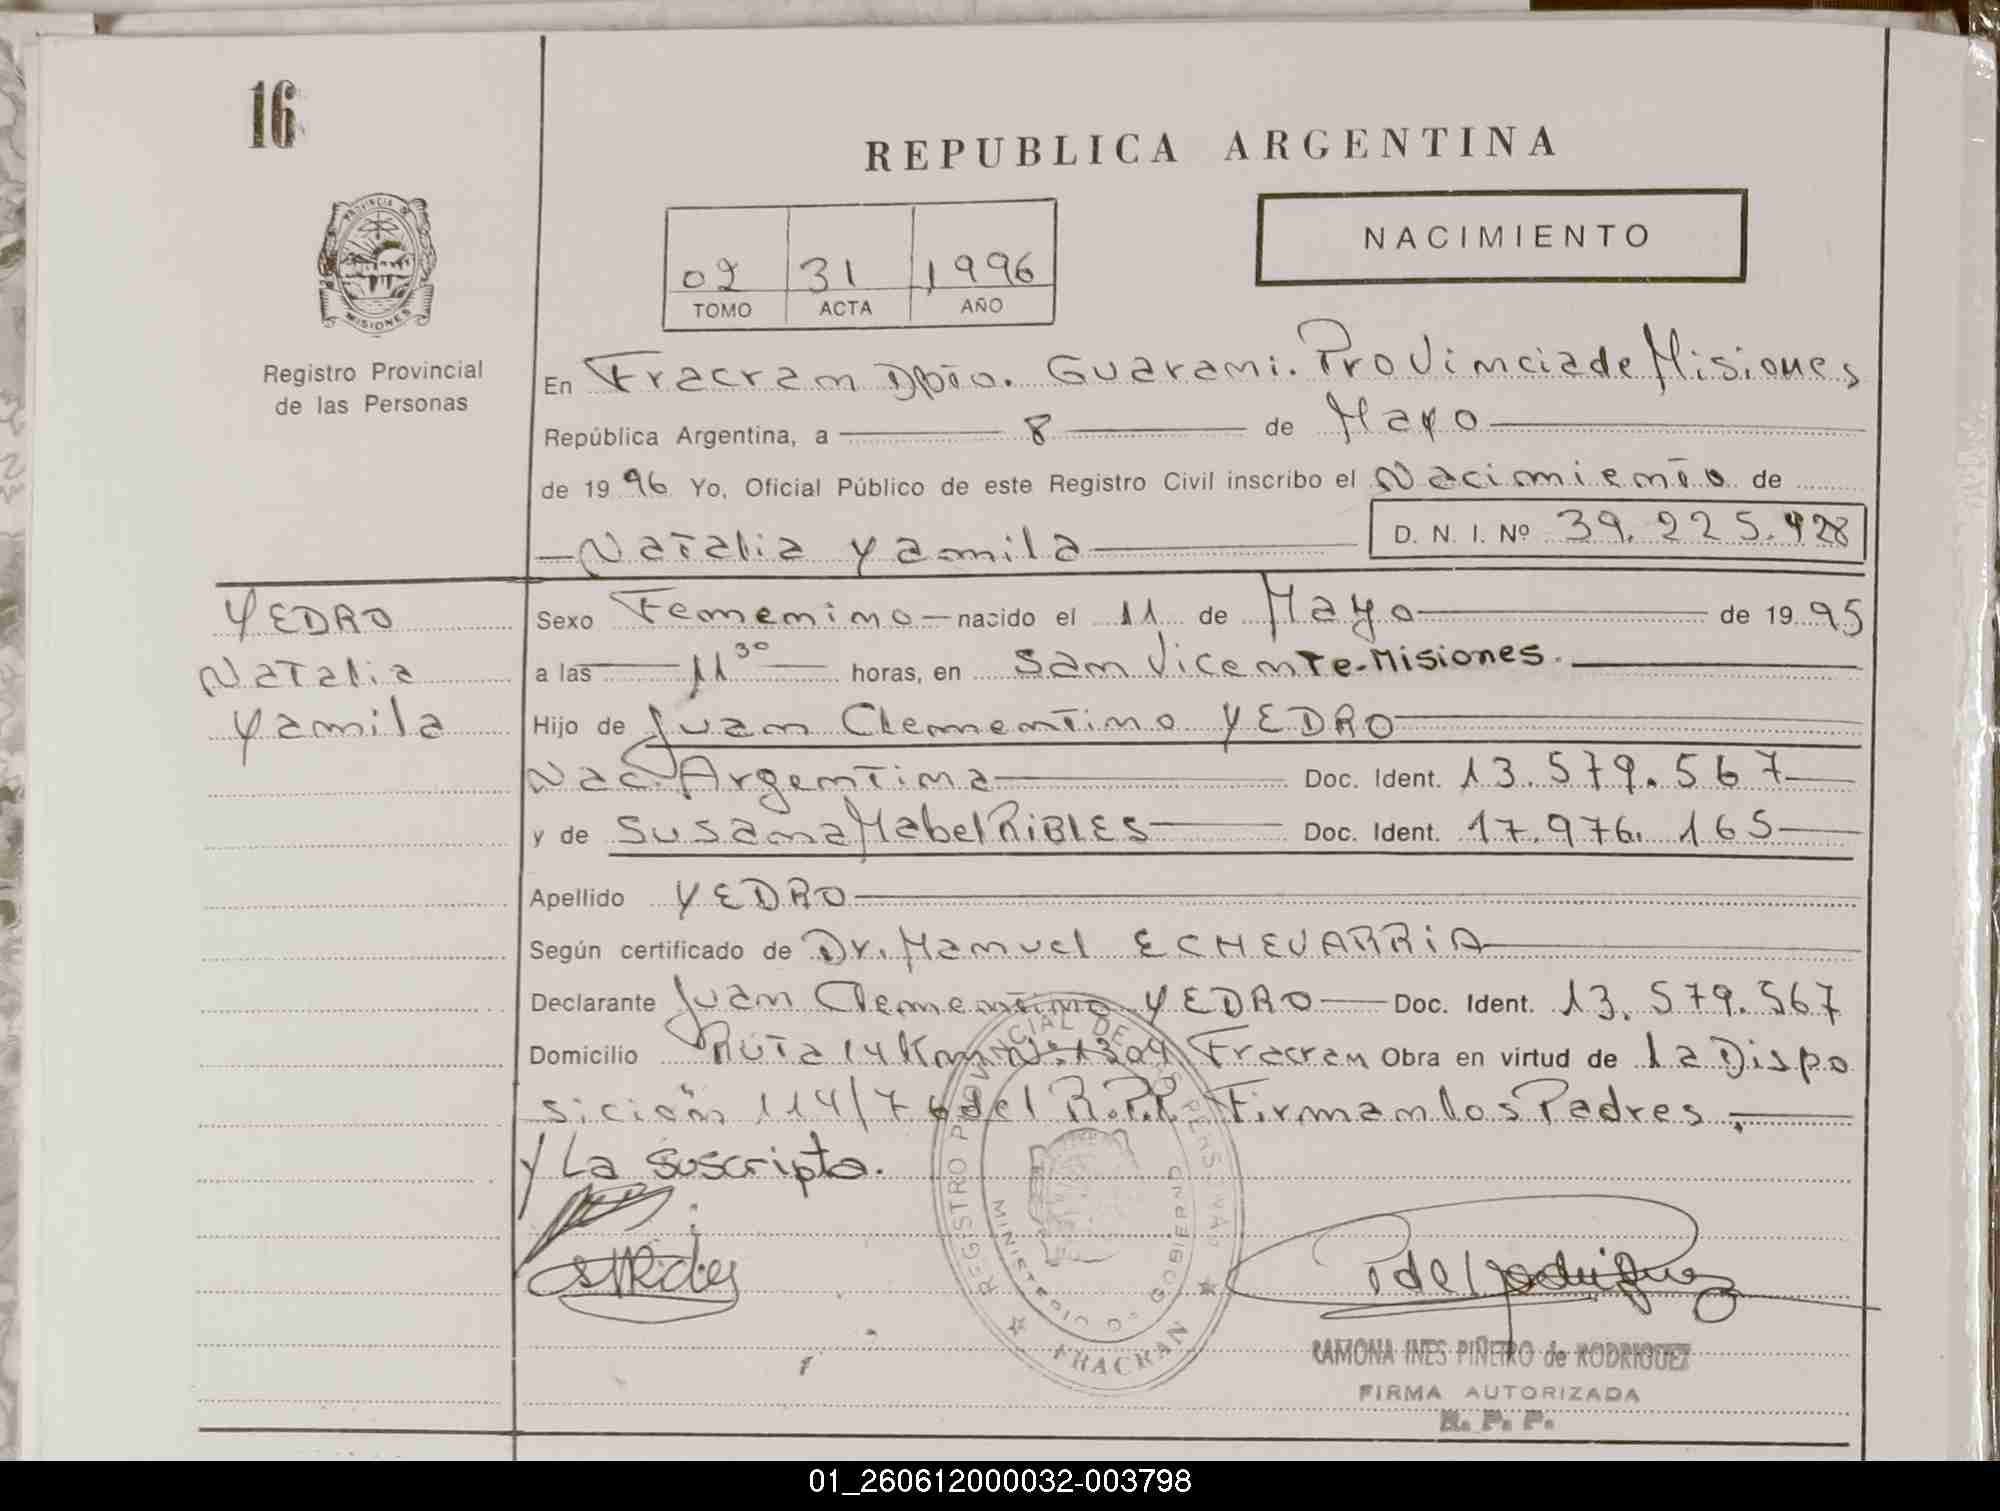 16
REPUBLICA ARGENTINA
PROVINCIA DE
MISIONES
NACIMIENTO
02 31 1996
TOMO ACTA AÑO
Registro Provincial
de las Personas
En Fracran Dpto. Guarani. Provincia de Misiones
República Argentina, a 8 de Mayo
de 19 96 Yo, Oficial Público de este Registro Civil inscribo el Nacimiento de
Natalia Yamila D. N. I. Nº 39.225.428
YEDRO
Natalia
Yamila
Sexo Femenino nacido el 11 de Mayo de 19 95
a las 11 30 horas, en San Vicente-Misiones.
Hijo de Juan Clementino YEDRO
Nac. Argentina Doc. Ident. 13.579.567
y de Susana Mabel RIBLES Doc. Ident. 17.976.165
Apellido YEDRO
Según certificado de Dr. Manuel ECHEVARRIA
Declarante Juan Clementino YEDRO Doc. Ident. 13.579.567
Domicilio Ruta 14 Km Nº 1304 Fracran Obra en virtud de la Dispo
sición 114/76 del R.P.P. Firman los Padres,
y La suscripta.
REGISTRO PROVINCIAL DE LAS PERSONAS
MINISTERIO DE GOBIERNO
FRACRAN
P de Rodriguez
RAMONA INES PIÑEIRO de RODRIGUEZ
FIRMA AUTORIZADA
R. P. P.
01_260612000032-003798